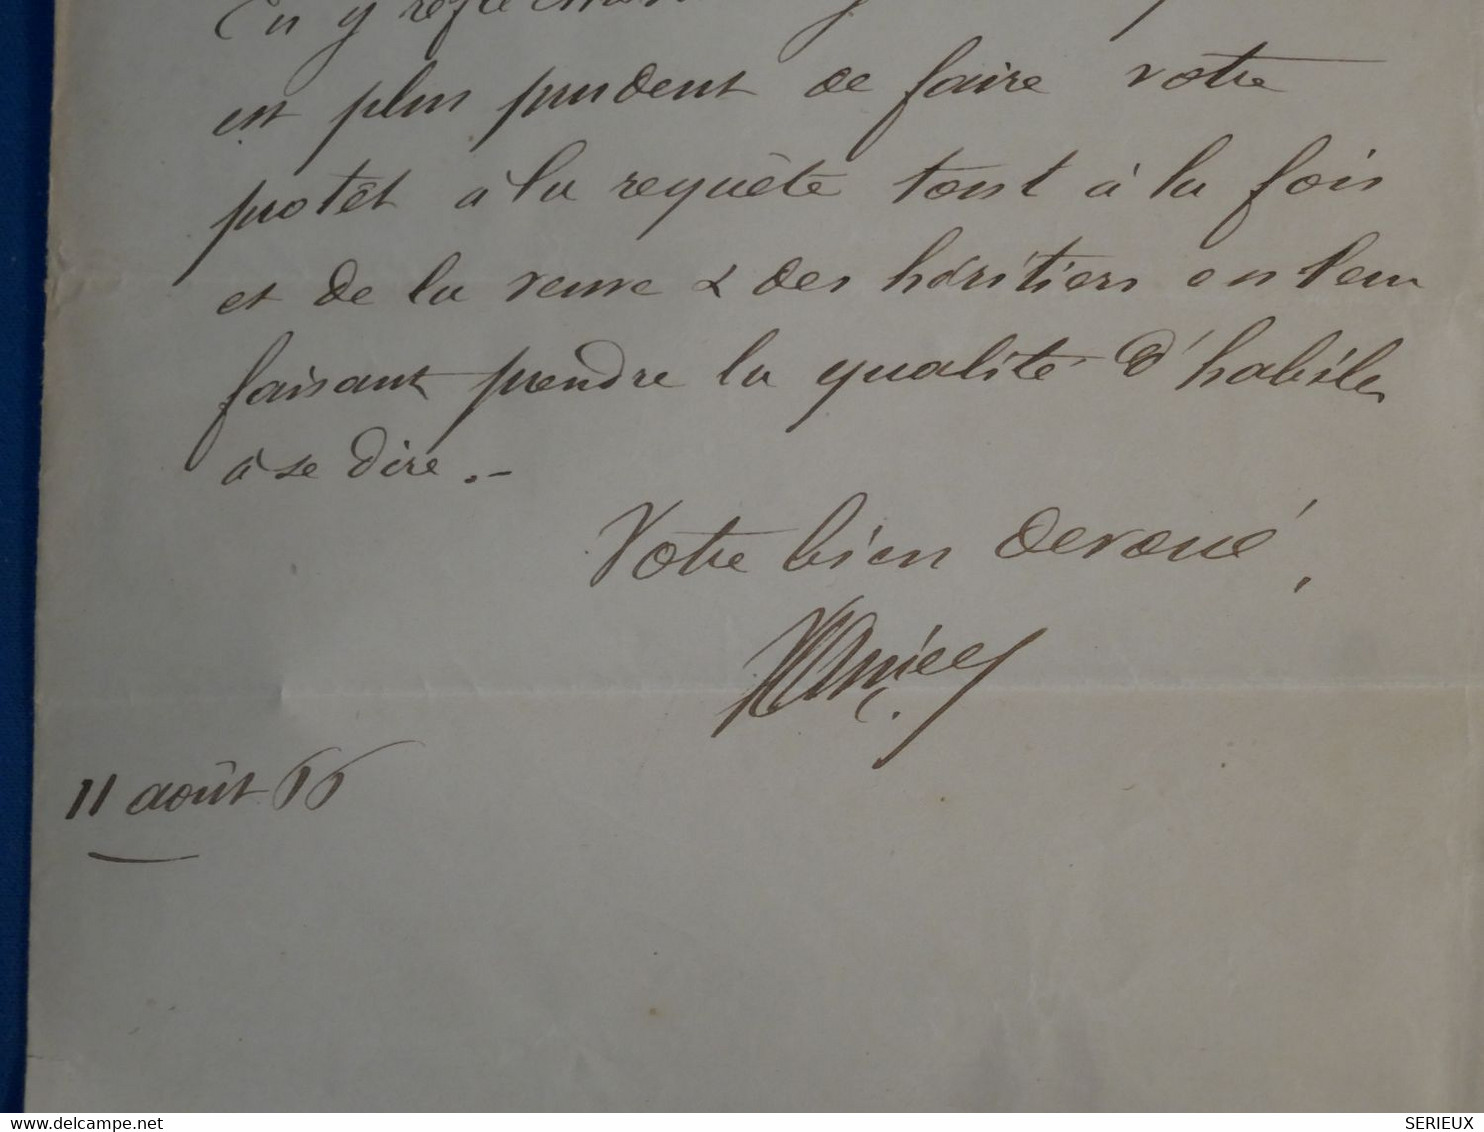 En y réfléchissant
est plus prudent de faire votre
protêt à la requête tout à la fois
et de la veuve & des héritiers en leur
faisant prendre la qualité d'habiles
à se dire. -
Votre bien devoué,
11 août 66
delcampe.net
SERIEUX